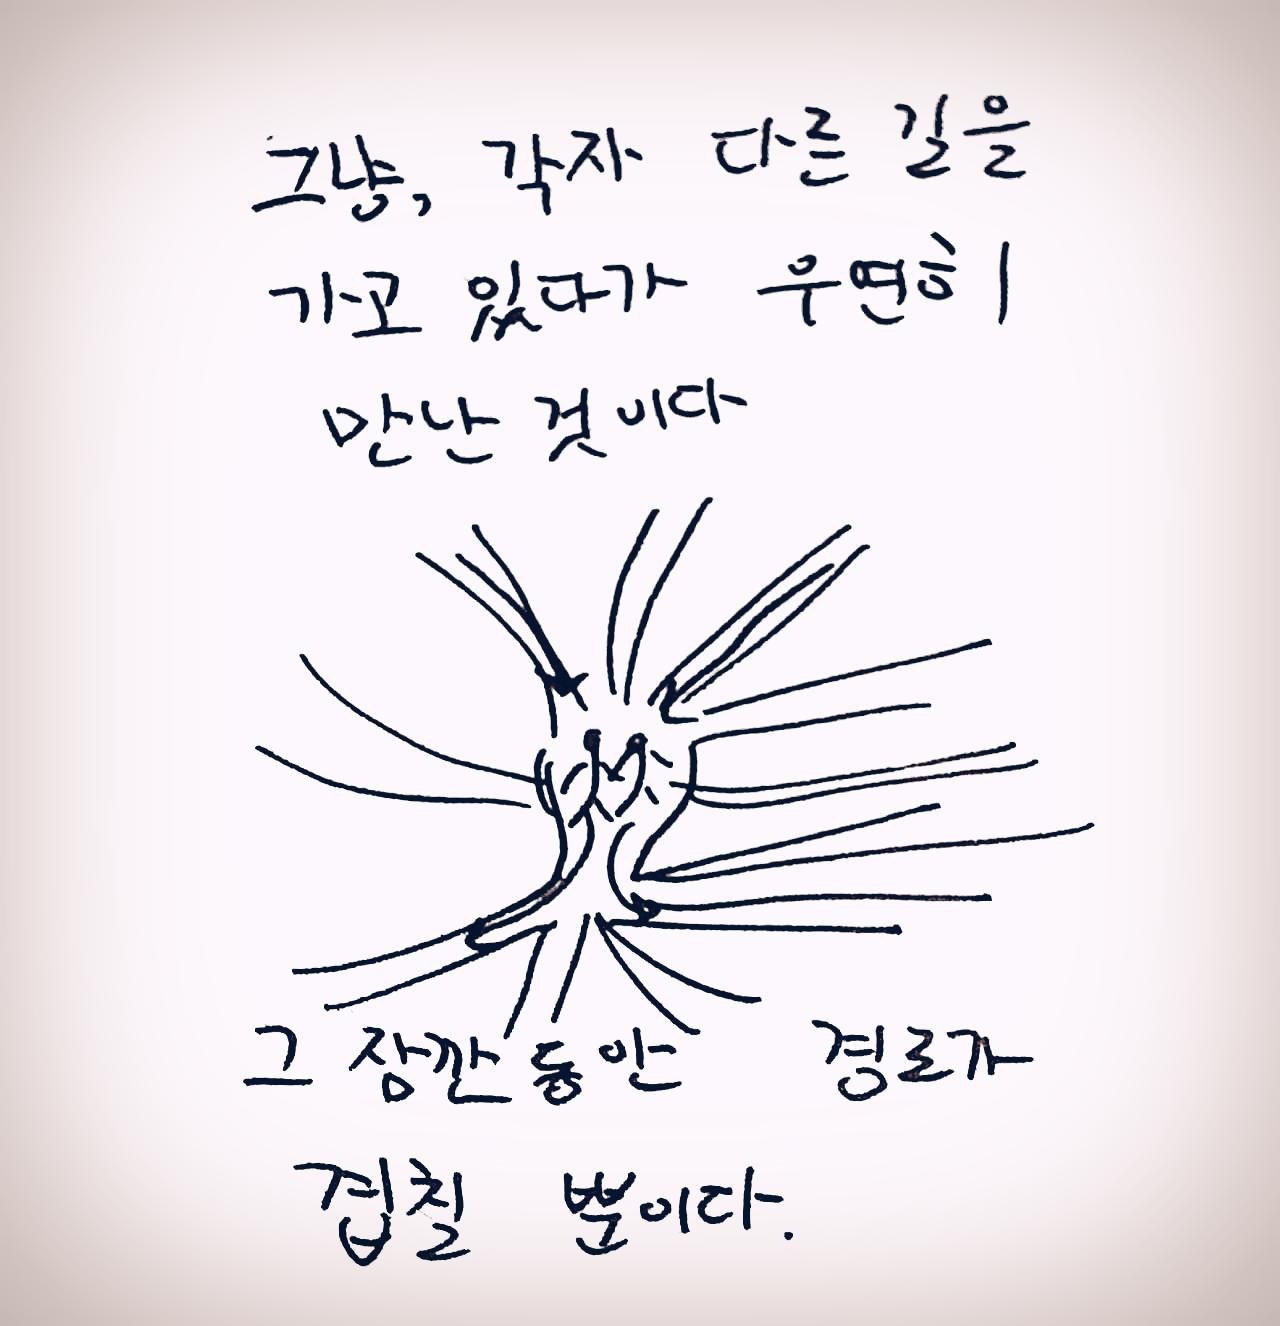 그냥, 각자 다른 길을
가고 있다가 우연히
만난 것이다
그 잠깐 동안 경로가
겹칠 뿐이다.